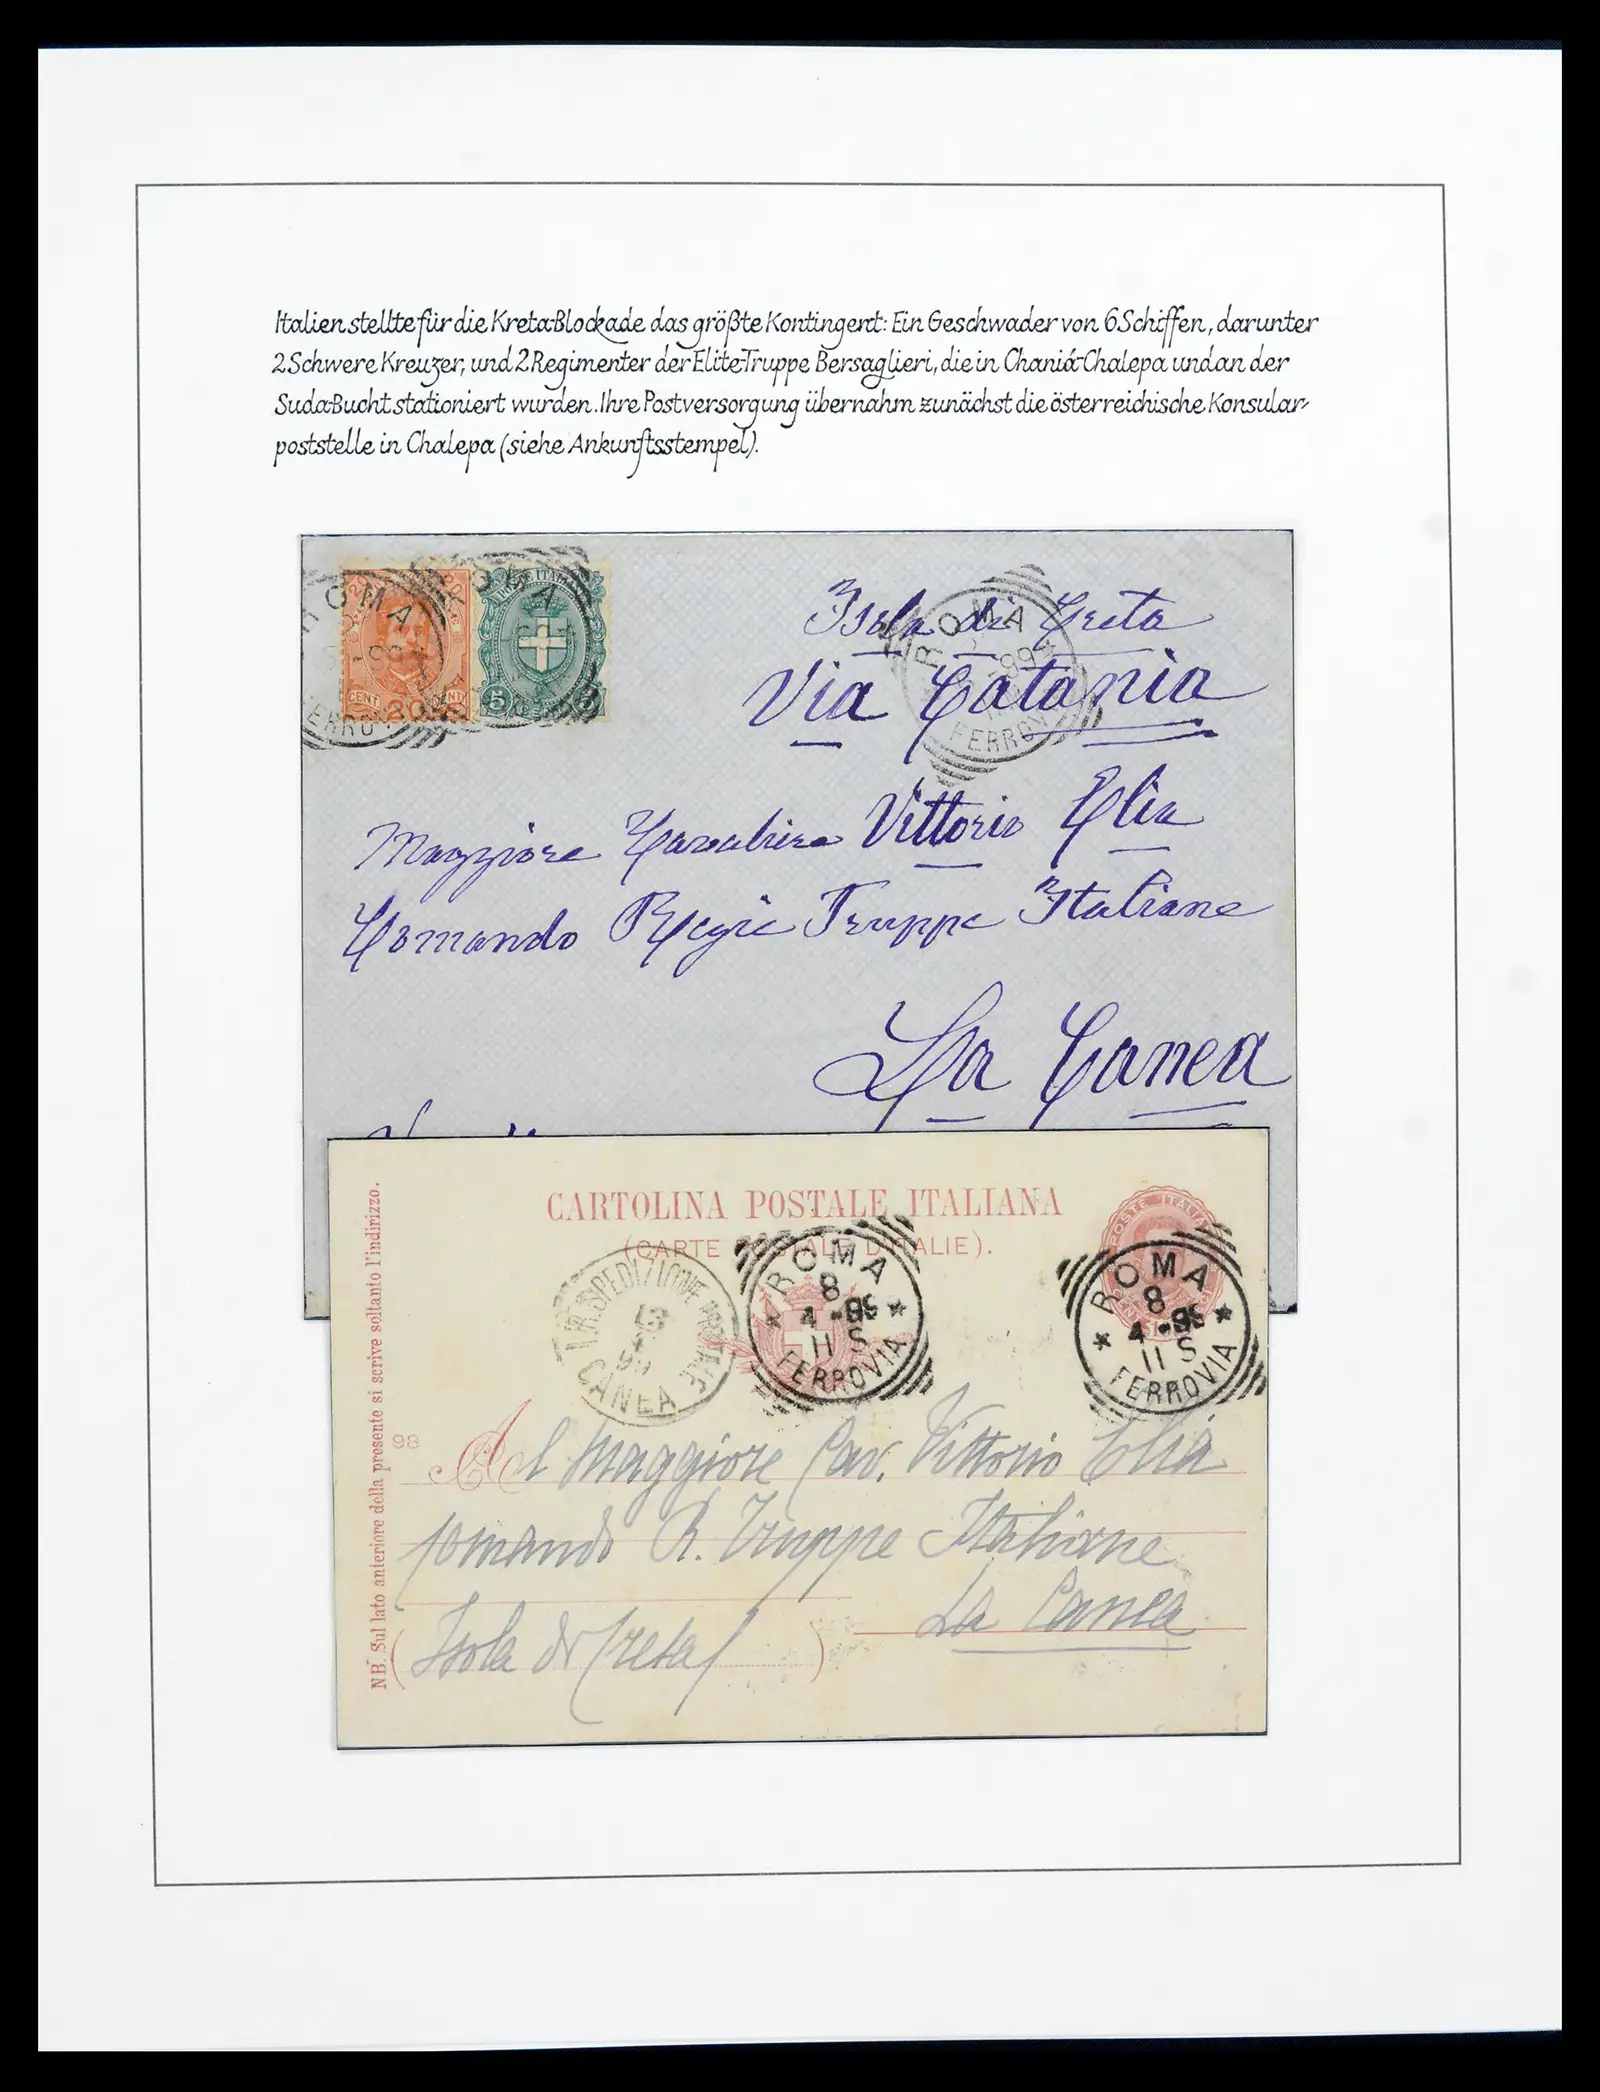 Italien stellte für die Kreta-Blockade das größte Kontingent: Ein Geschwader von 6 Schiffen, darunter
2 Schwere Kreuzer, und 2 Regimenter der Elite-Truppe Bersaglieri, die in Chaniá-Chalepa und an der
Suda-Bucht stationiert wurden. Ihre Postversorgung übernahm zunächst die österreichische Konsular-
poststelle in Chalepa (siehe Ankunftsstempel).
ROMA
-99
FERROV
20
CENT
20
POSTE ITAL
5
Isola di Creta
ROMA
-99
FERROV
Via Catania
Maggiore Cavaliere Vittorio Elia
Comando Regie Truppe Italiane
La Canea
CARTOLINA POSTALE ITALIANA
(CARTE POSTALE D'ITALIE).
POSTE ITALI
SPEDIZIONE
CANEA
ROMA
8
4 -99
11 S
FERROVIA
ROMA
8
4 -99
11 S
FERROVIA
98
Al Maggiore Cav. Vittorio Elia
Comando R. Truppe Italiane
La Canea
(Isola di Creta)
NB. Sul lato anteriore della presente si scrive soltanto l'indirizzo.